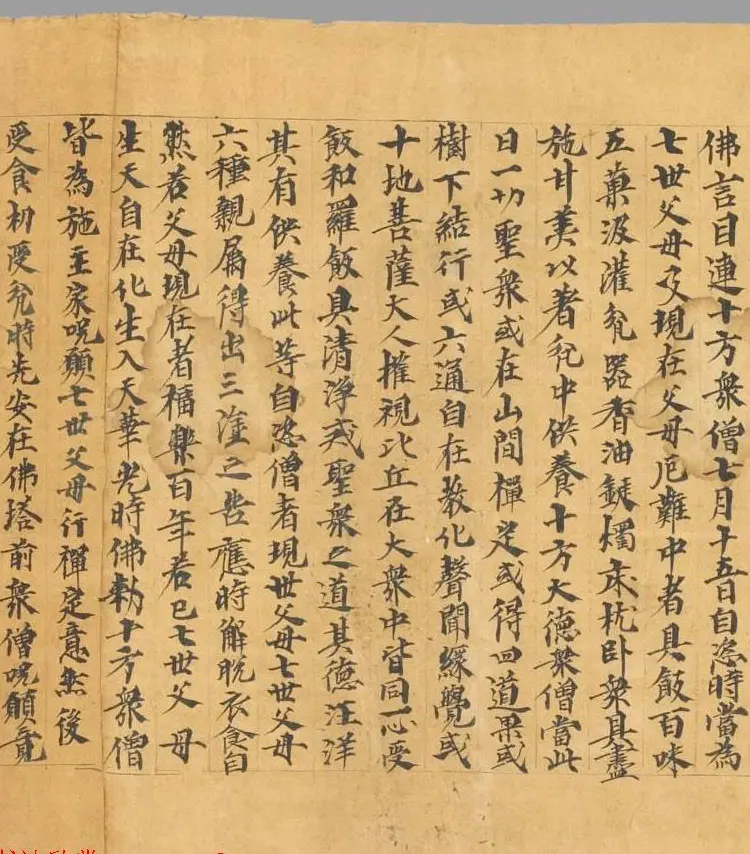 佛言目連十方衆僧七月十五日自恣時當為
七世父母及現在父母厄難中者具飯百味
五菓汲灌瓫器香油鋌燭床枕卧衆具盡
施甘美以著瓫中供養十方大德衆僧當此
日一切聖衆或在山間禪定或得四道果或
樹下結行或六通自在教化聲聞緣覺或
十地菩薩大人權視比丘在大衆中皆同一心受
飯和羅飯具清淨戒聖衆之道其德汪洋
其有供養此等自恣僧者現世父母七世父母
六種親屬得出三塗之苦應時解脫衣食自
然若父母現在者福樂百年若已七世父母
生天自在化生入天華光時佛勑十方衆僧
皆為施主家呪願七世父母行禪定意然後
受食初受瓫時先安在佛塔前衆僧呪願竟